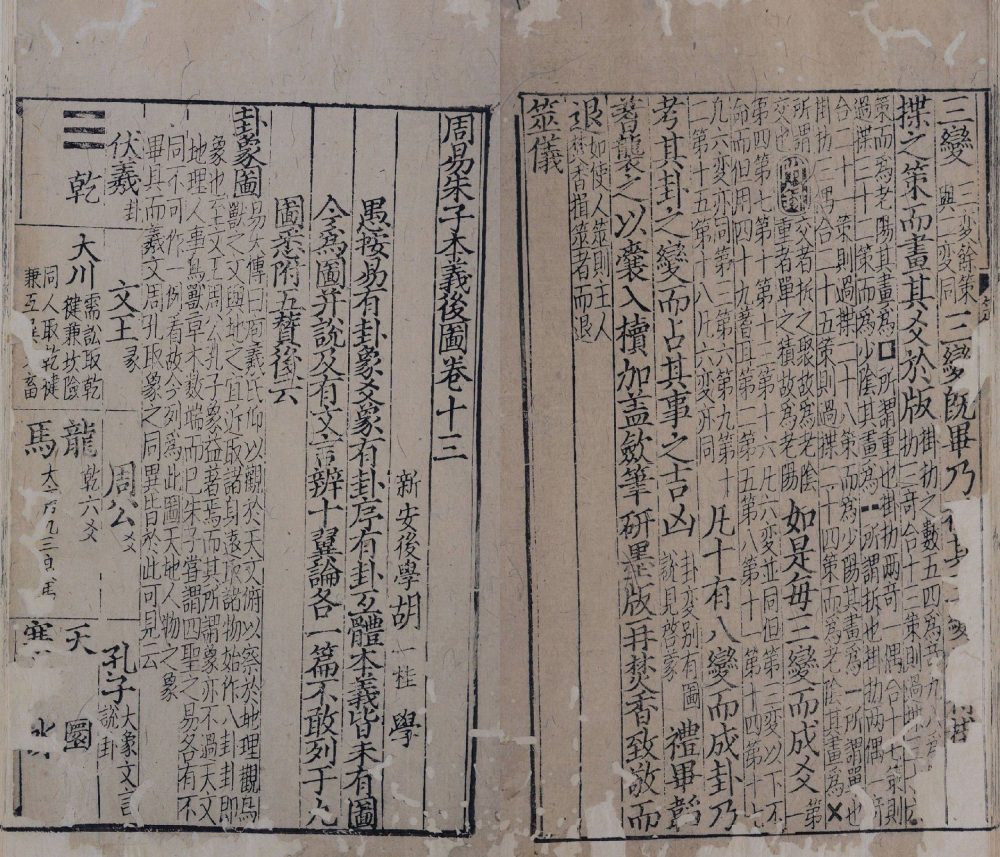 三變三變餘策與二變同三變既畢乃
揲之策而畫其爻於版掛扐之數五四為
掛扐三奇合十三策則過揲三十
策而為老陽其畫為□所謂重也掛扐兩奇一偶合十七策則
過揲三十二策而為少陰其畫為--所謂拆也掛扐兩偶一奇
合二十一策則過揲二十八策而為少陽其畫為一所謂單也
掛扐三偶合二十五策則過揲二十四策而為老陰其畫為×
所謂交也交者拆之聚故為老陰重者單之積故為老陽如是每三變而成爻第一
第四第七第十第十三第十六凡六变並同但第三变以下不
命而但用四十九蓍耳第二第五第八第十一第十四第十七
凡六变亦同第三第六第九第十二第十五第十八凡六变亦同凡十有八變而成卦乃
考其卦之變而占其事之吉凶卦变別有圖說見啓蒙禮畢韜
蓍襲之以囊入櫝加蓋斂筆研墨版再焚香致敬而
退如使人筮則主人焚香揖筮者而退
筮儀
周易朱子本義後圖卷十三
新安後學胡一桂學
愚按易有卦象爻象有卦序有卦互體本義皆未有圖
今為圖并說及有文言辨十翼論各一篇不敢列于九
圖悉附五贊後云
卦象圖
易大傳曰庖羲氏仰以觀於天文俯以察於地理觀鳥
獸之文與地之宜近取諸身遠取諸物始作八卦卦即
象也至文王周公孔子象益著焉而其所謂象亦不過天文
地理人事鳥獸草木数端而已朱子嘗謂四聖之易各有不
同不可作一例看故今列為此圖天地人物之象
畢具而羲文周孔取象之同異皆於此可見云
伏羲卦
文王彖
周公爻
孔子大象文言說卦
☰乾
大川需訟取乾健兼坎險
同人取乾健兼互
龍乾六爻
馬大
天
圜